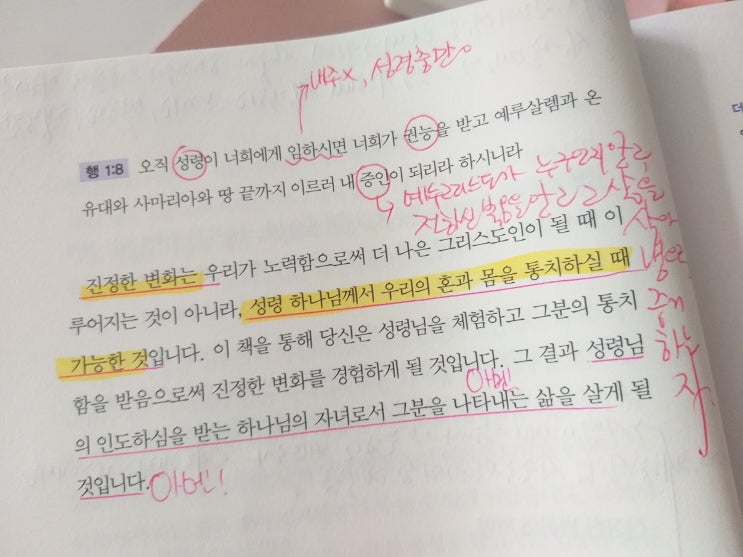 내주x, 성령충만o
행 1:8 오직 성령이 너희에게 임하시면 너희가 권능을 받고 예루살렘과 온
유대와 사마리아와 땅 끝까지 이르러 내 증인이 되리라 하시니라
예수그리스도가 누구인지 알고
전하신 복음을 알고 그 삶을
살아
증거
하는
자.
진정한 변화는 우리가 노력함으로써 더 나은 그리스도인이 될 때 이
루어지는 것이 아니라, 성령 하나님께서 우리의 혼과 몸을 통치하실 때
가능한 것입니다. 이 책을 통해 당신은 성령님을 체험하고 그분의 통치
함을 받음으로써 진정한 변화를 경험하게 될 것입니다. 그 결과 성령님
아멘
의 인도하심을 받는 하나님의 자녀로서 그분을 나타내는 삶을 살게 될
것입니다. 아멘!
더